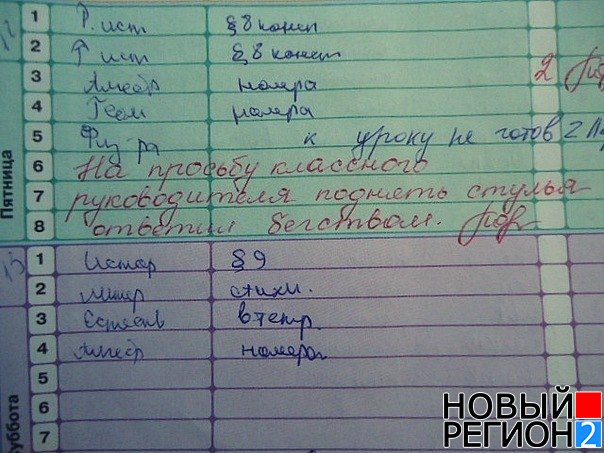 12
Пятница
1 Р. ист § 8 консп
2 Р ист § 8 конспт
3 Алгебр номера 2
4 Геом номера
5 Физ ра к уроку не готов 2
6 На просьбу классного
7 руководителя поднять стулья
8 ответил бегством.
13
суббота
1 Истор § 9
2 Литер стихи.
3 Естеств в тетр.
4 Алгебр номера
5
6
7
НОВЫЙ
РЕГИОН 2